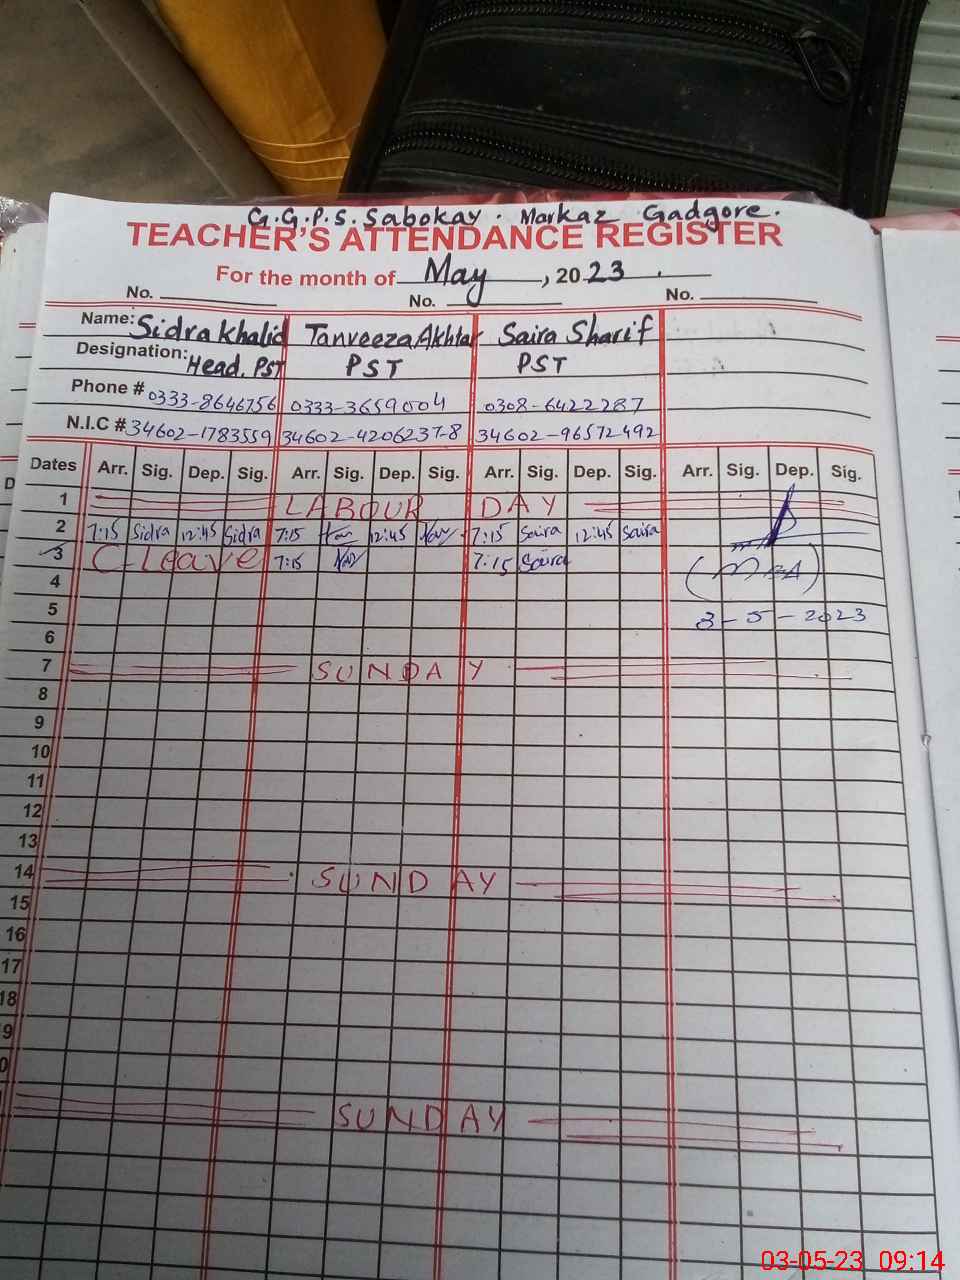 G.G.P.S. Sabokay. Markaz Gadgore.
TEACHER'S ATTENDANCE REGISTER
For the month of May, 2023.
No. No. No.
Name: Sidra Khalid Tanveeza Akhtar Saira Sharif
Designation: Head. PST PST PST
Phone # 0333-8646756 0333-3659004 0308-6422287
N.I.C # 34602-1783559 34602-4206237-8 34602-96572492
Dates Arr. Sig. Dep. Sig. Arr. Sig. Dep. Sig. Arr. Sig. Dep. Sig. Arr. Sig. Dep. Sig.
1 LABOUR DAY
2 7:15 Sidra 12:45 Sidra 7:15 12:45 7:15 Saira 12:45 Saira
3 C Leave 7:15 7:15 Saira
4 (MEA)
5 3-5-2023
6
7 SUNDAY
8
9
10
11
12
13
14 SUNDAY
15
16
17
18
9
0
SUNDAY
03-05-23 09:14